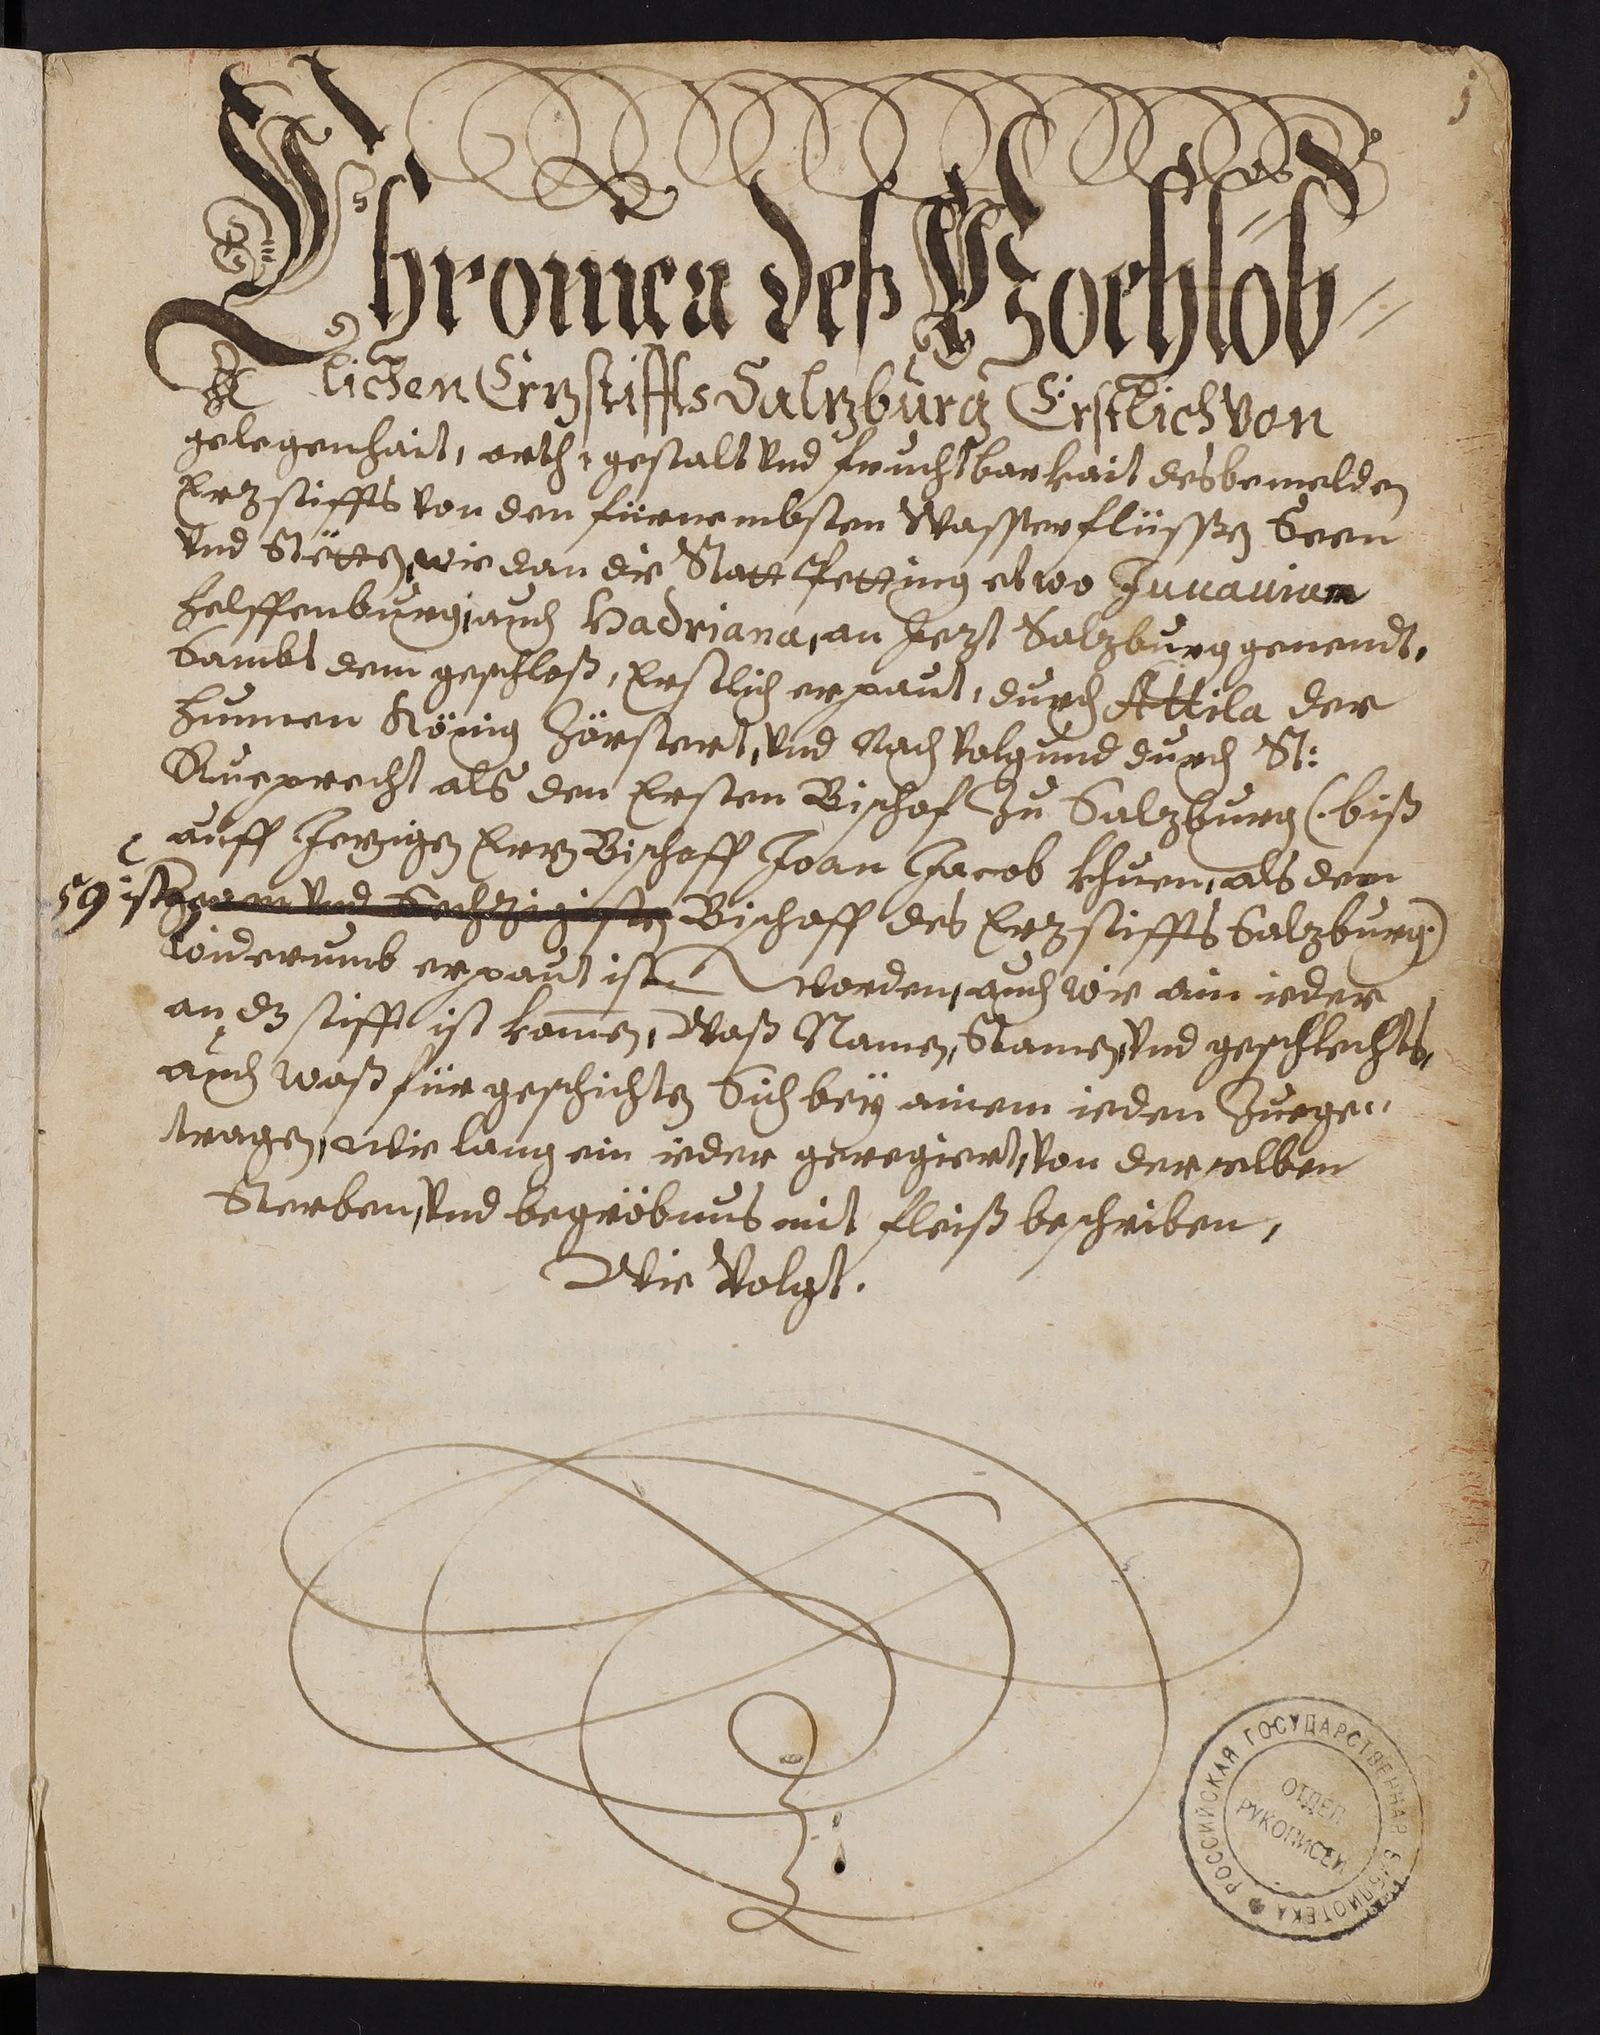 Chronica deß Hochlob=
lichen Ertzstiffts Saltzburg Erstlich von
gelegenhait, orth, gestalt vnd fruchtbarkait des bemelden
Erzstiffts von den fürnembsten Wasserflüssen Seen
vnd Stetten, wie dan die Statt Petting etwo Juuauium
Helffenburg, auch Hadriana, an Jezt Salzburg genendt,
Sambt dem geschloß, Erstlich erpaut, durch Attila der
Hunnen König Zörstert, vnd Nachvolgund durch St:
Rueprecht als den Ersten Bischof Zu Salzburg (. biß
auff Jezigen Erz Bischoff Joan Jacob Khuen, als dem
59 ist Bischoff des Erzstiffts Salzburg.)
widerumb erpaut ist worden, auch wie ain ieder
an dz stifft ist komen, Waß Namen, Stamen, vnd geschlechts,
auch waß für geschichten Sich bey ainem ieden Zuege=
tragen, Wie lang ein ieder geregiert, von derselben
Sterben, vnd begröbnus mit fleiß beschriben,
Wie Volgt.
РОССИЙСКАЯ ГОСУДАРСТВЕННАЯ БИБЛИОТЕКА
ОТДЕЛ
РУКОПИСЕЙ